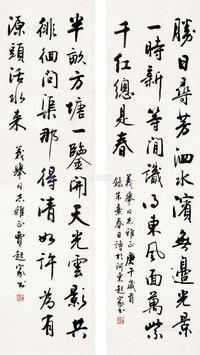 勝日尋芳泗水濱無邊光景
一時新等閒識得東風面萬紫
千紅總是春
義舉同志雅正庚午歲首
錄朱熹春日詩於河東起家書
半畝方塘一鑑開天光雲影共
徘徊問渠那得清如許為有
源頭活水来
義舉同志雅正賈起家書